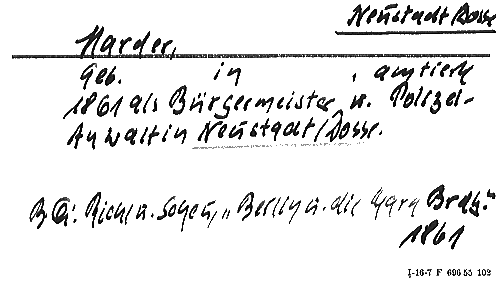 Neustadt/Dosse
Harder,
Geb. in , amtierte
1861 als Bürgermeister u. Polizei-
Anwalt in Neustadt/Dosse.
BQ: Riehl u. Scheu, „Berlin u. die Mark Brdbg."
1861
I-16-7 F 696 55 102